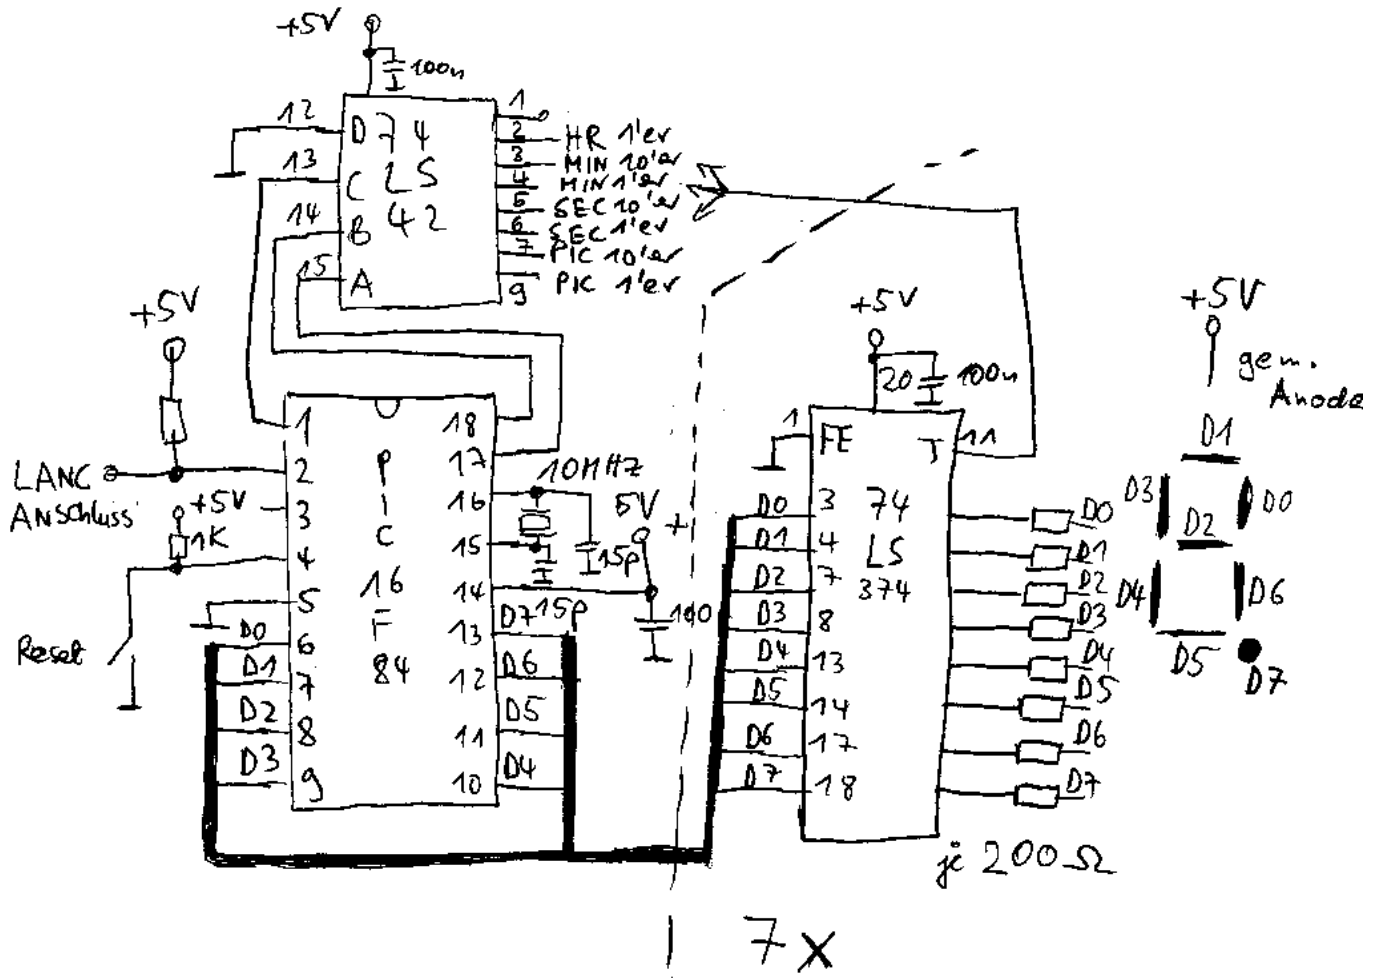 +5V
100n
12
13
14
15
D 74
C LS
B 42
A
1
2 HR 1'er
3 MIN 10'er
4 MIN 1'er
5 SEC 10'er
6 SEC 1'er
7 PIC 10'er
9 PIC 1'er
+5V
LANC
Anschluss
+5V
1K
Reset
PIC
16
F
84
1
2
3
4
5
6
7
8
9
18
17
16
15
14
13
12
11
10
D0
D1
D2
D3
D7
D6
D5
D4
10MHZ
15p
15p
5V +
100
+5V
20
100n
1
FE
T
11
74
LS
374
D0 3
D1 4
D2 7
D3 8
D4 13
D5 14
D6 17
D7 18
D0
D1
D2
D3
D4
D5
D6
D7
je 200Ω
7x
+5V
gem.
Anode
D1
D3
D0
D2
D4
D6
D5
D7